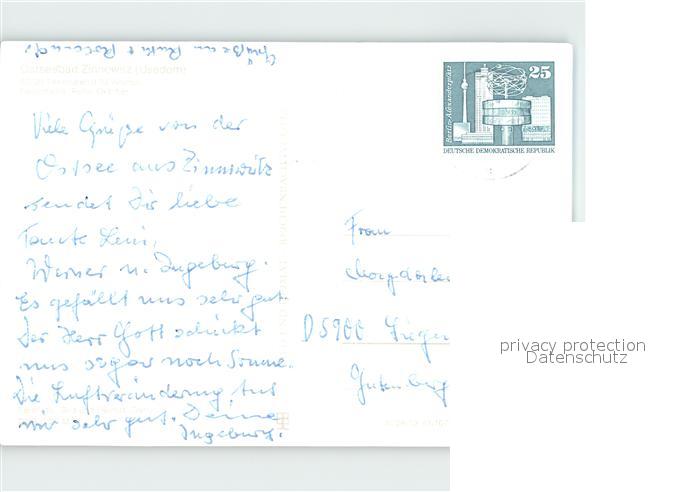 Grüße an Ruth +
Ostseebad Zinnowitz (Usedom)
Viele Grüße von der
Ostsee aus Zinnowitz
sendet Dir liebe
Tante Leni,
Werner u. Ingeburg.
Es gefällt uns sehr gut.
Der Herr Gott schickt
uns sogar noch Sonne.
Die Luftveränderung tut
mir sehr gut. Deine
Ingeburg.
Berlin-Alexanderplatz
25
DEUTSCHE DEMOKRATISCHE REPUBLIK
Frau
D 5900 Siegen
Gutenberg
privacy protection
Datenschutz